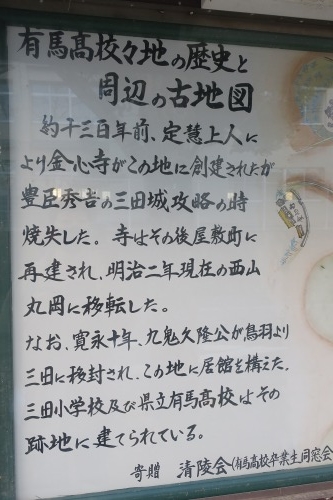 有馬髙校々地の歴史と
周辺の古地図
約千三百年前、定慧上人に
より金心寺がこの地に創建されたが
豊臣秀吉の三田城攻略の時
焼失した。寺はその後屋敷町に
再建され、明治二年現在の西山
丸岡に移転した。
なお、寛永十年、九鬼久隆公が鳥羽より
三田に移封され、この地に居館を構えた。
三田小学校及び県立有馬髙校はその
跡地に建てられている。
寄贈 清陵会(有馬髙校卒業生同窓会